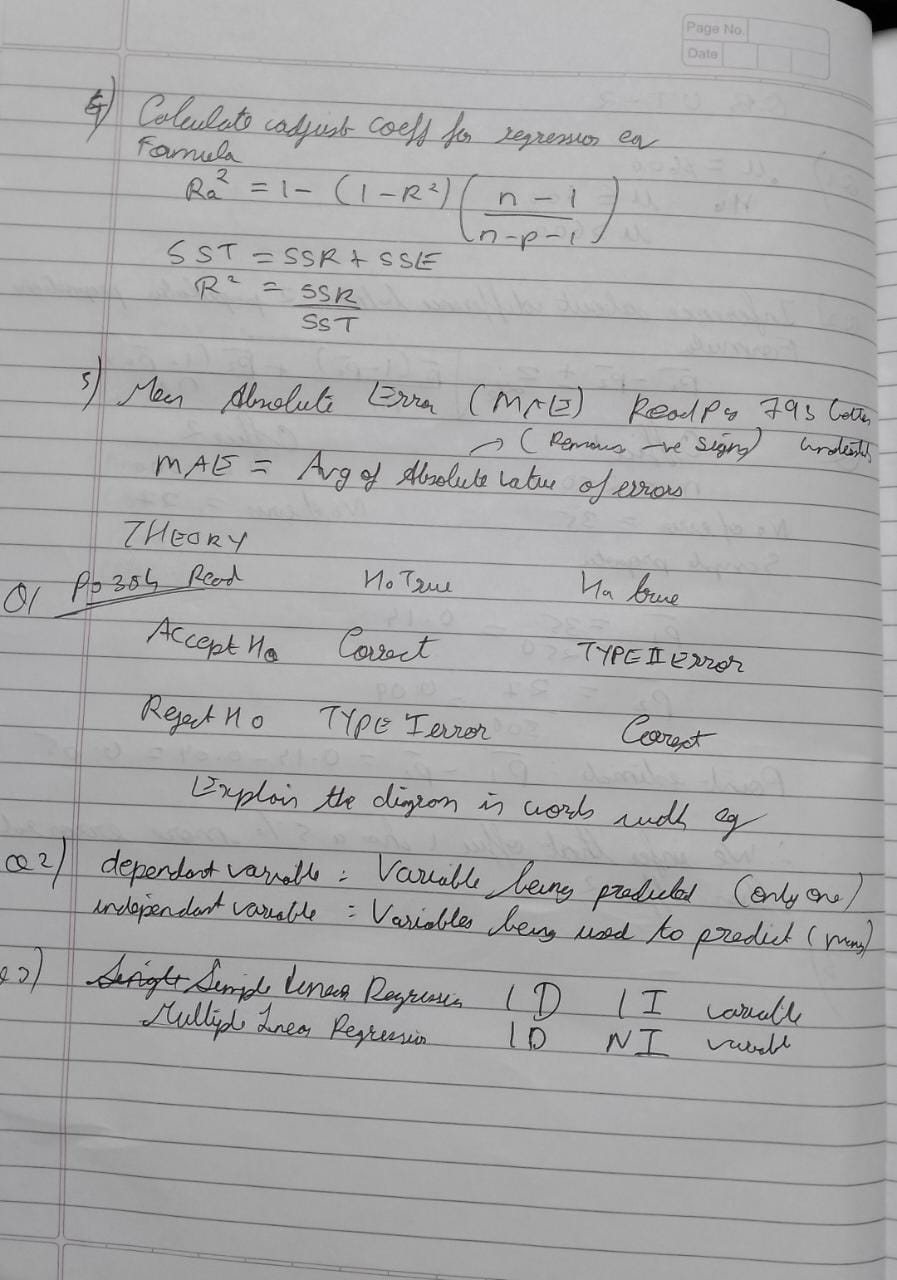 Page No.
Date
4) Calculate adjust coeff for regression eq
Formula
Ra² = 1 - (1 - R²) ( n - 1 / n - p - 1 )
SST = SSR + SSE
R² = SSR / SST
5) Mean Absolute Error (MAE) Read Pg 793 better
→ (Removes -ve signs)
MAE = Avg of Absolute value of errors
THEORY
Q1 Pg 384 Read Ho True Ha true
Accept Ho Correct TYPE II Error
Reject Ho TYPE I error Correct
Explain the diagram in words with eg
Q2) dependant variable : Variable being predicted (only one)
independant variable : Variables being used to predict (many)
Simple Linear Regression 1 D 1 I variable
Multiple Linear Regression 1 D N I variable